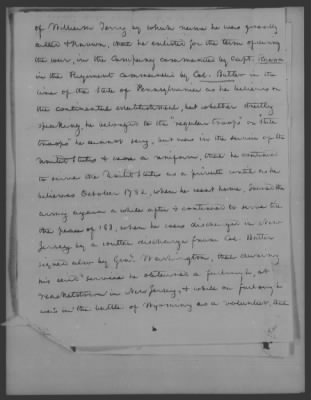 of William Terry by which name he was generally
called & known, that he enlisted for the term of during
the war, in the company commanded by Capt.
in the Regiment commanded by Col. Butler in the
line of the State of Pennsylvania as he believes on
the continental establishment, but whether strictly
speaking he belonged to the "regular troops" or State
troops" he cannot say, but was in the service of the
United States & wore a uniform, that he continued
to serve the United States as a private until as he
believes October 1782, when he went home, joined the
army again a while after & continued to serve till
the peace of 1783, when he was discharged in New
Jersey by a written discharge from Col. Butler
signed also by Genl. Washington, that during
his said services he obtained a furlough, at
in New Jersey, & while on furlough
was in the battle of Wyoming as a volunteer, that